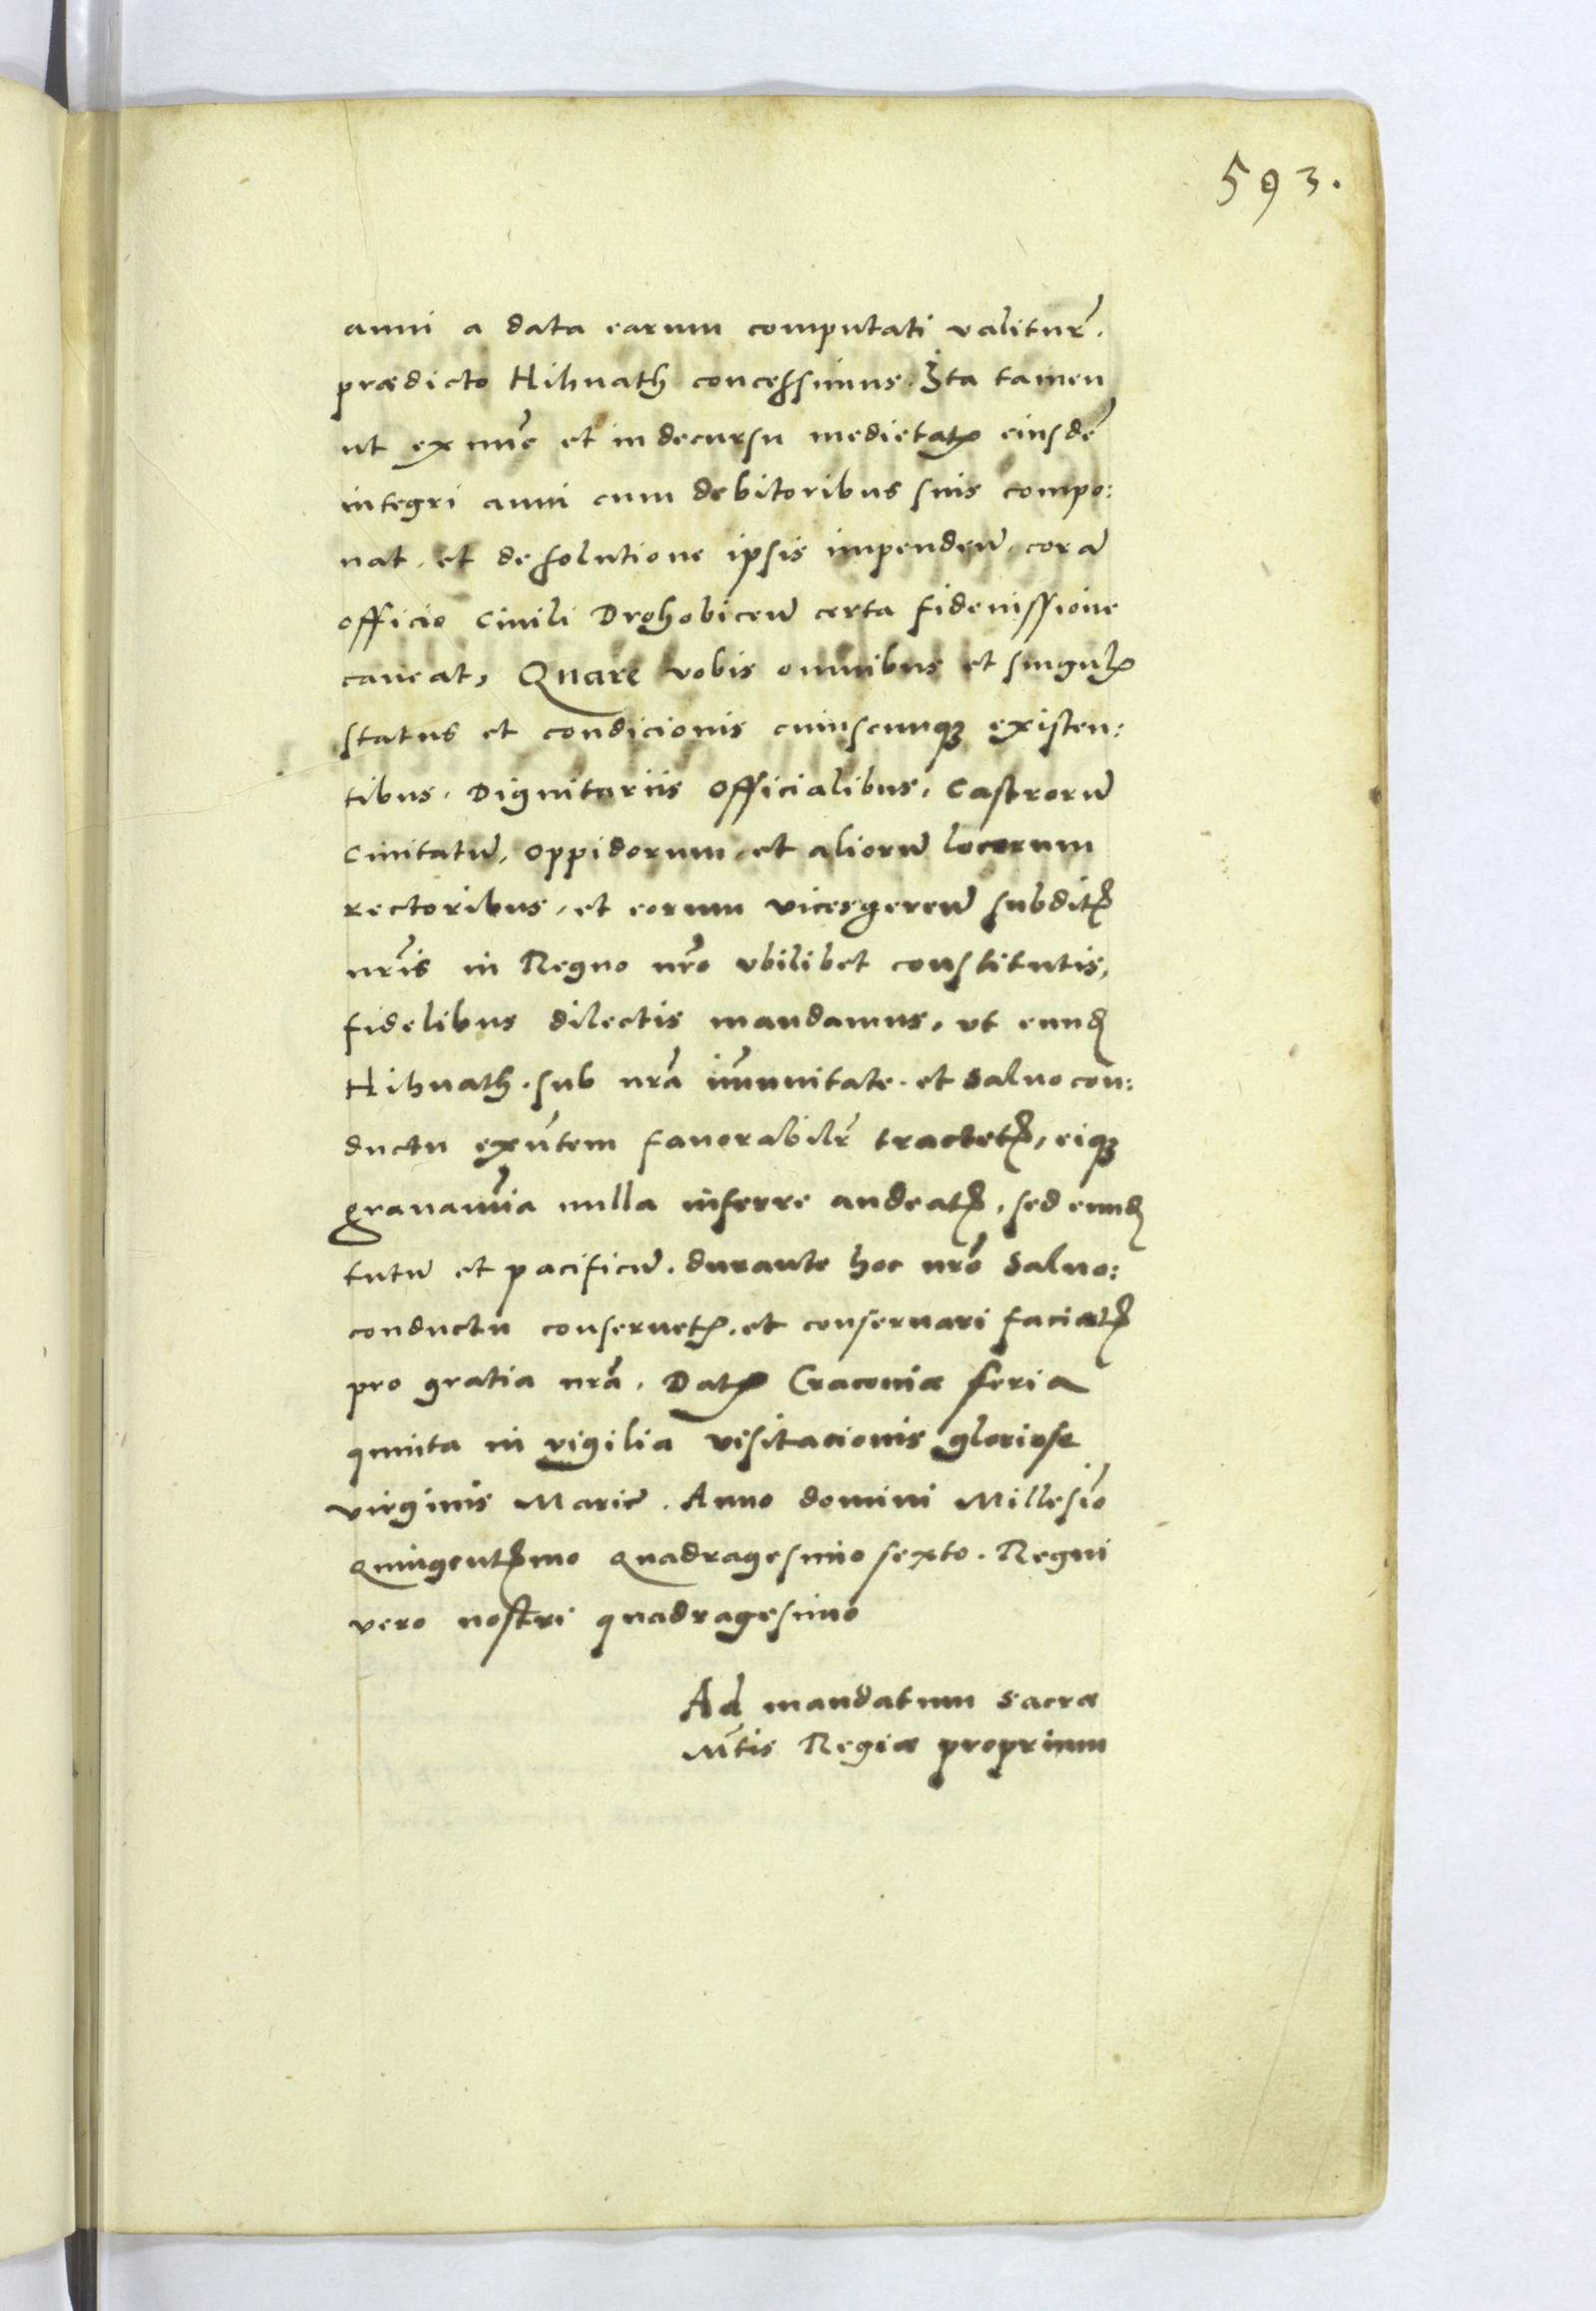 593.
anni a data earum computati valitur̃.
prædicto Hihnath concessimus. Ita tamen
ut ex nũc et in decursu medietatꝭ eiusdẽ
integri anni cum debitoribus suis compo:
nat. et de solutione ipsis impendeñ. corã
officio Civili Drohobiceñ certa fideiussione
caveat, Quare vobis omnibus et singulꝭ
status et condicionis cuiuscunqꝫ existen:
tibus. Dignitariis Officialibus, Castrorũ
Civitatũ, oppidorum, et aliorũ locorum
rectoribus, et eorum vicesgereñ subditꝭ
nr̃is in Regno nr̃o ubilibet constitutis,
fidelibus dilectis mandamus, ut eundẽ
Hihnath. sub nr̃a im̃unitate. et salvo con:
ductu exñtem favorabilr̃ tractetꝭ, eiqꝫ
gravamĩa nulla inferre audeatꝭ, sed eundẽ
tutũ et pacificũ. durante hoc nr̃o salvo:
conductu conservetꝭ. et conservari faciatꝭ
pro gratia nr̃a. Datꝭ Cracoviæ feria
quinta in vigilia visitacionis gloriose
virginis Marię. Anno domini Millesiõ
Quingentꝭmo Quadragesimo sexto. Regni
vero nostri quadragesimo
Ad mandatum sacræ
Mt̃is Regiæ proprium